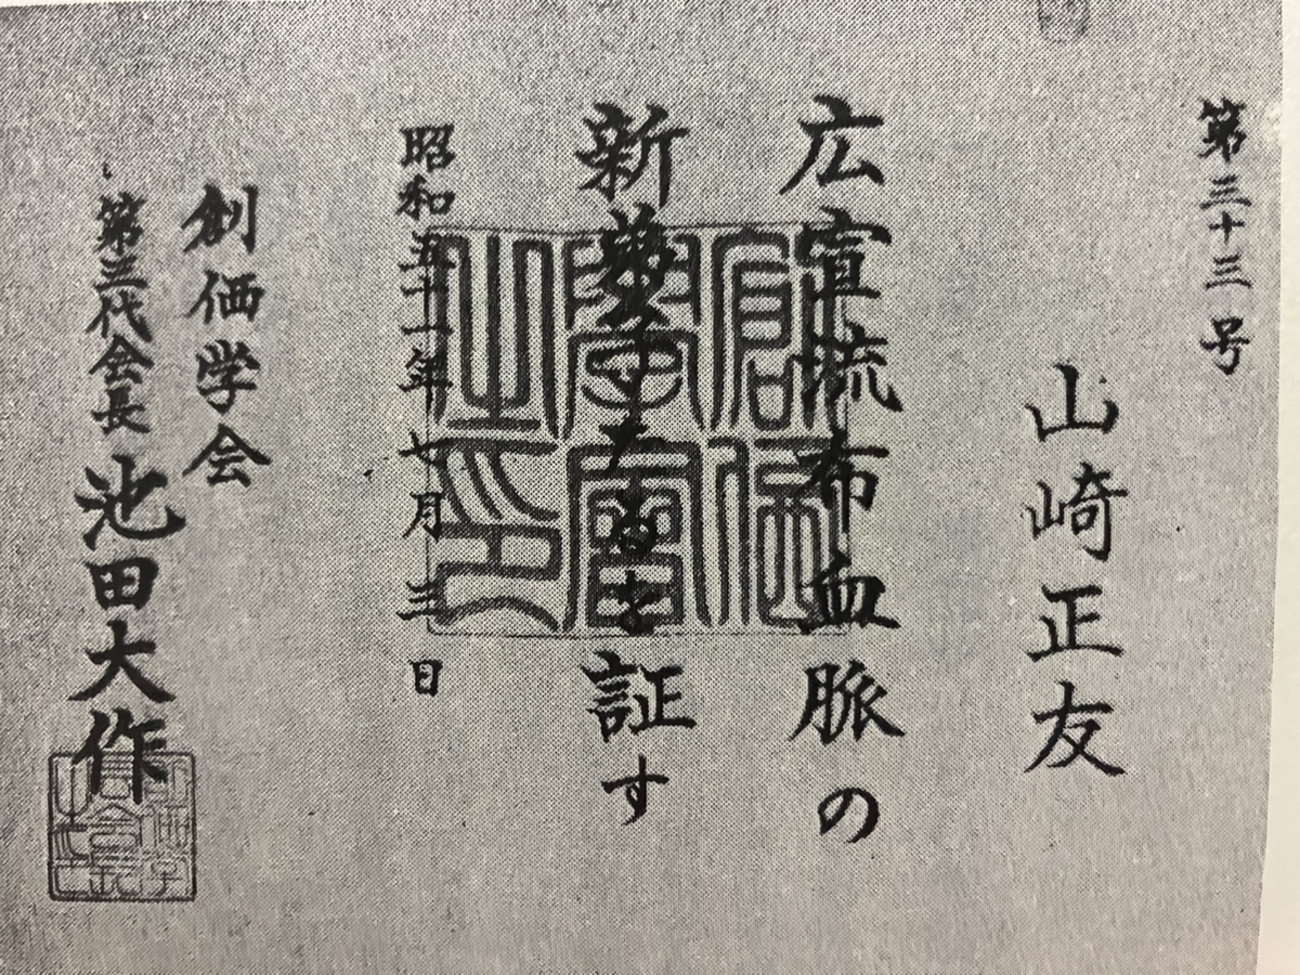 第三十三号
山崎正友
広宣流布血脈の
新 るを証す
昭和五十一年七月三日
創価学会
第三代会長 池田大作